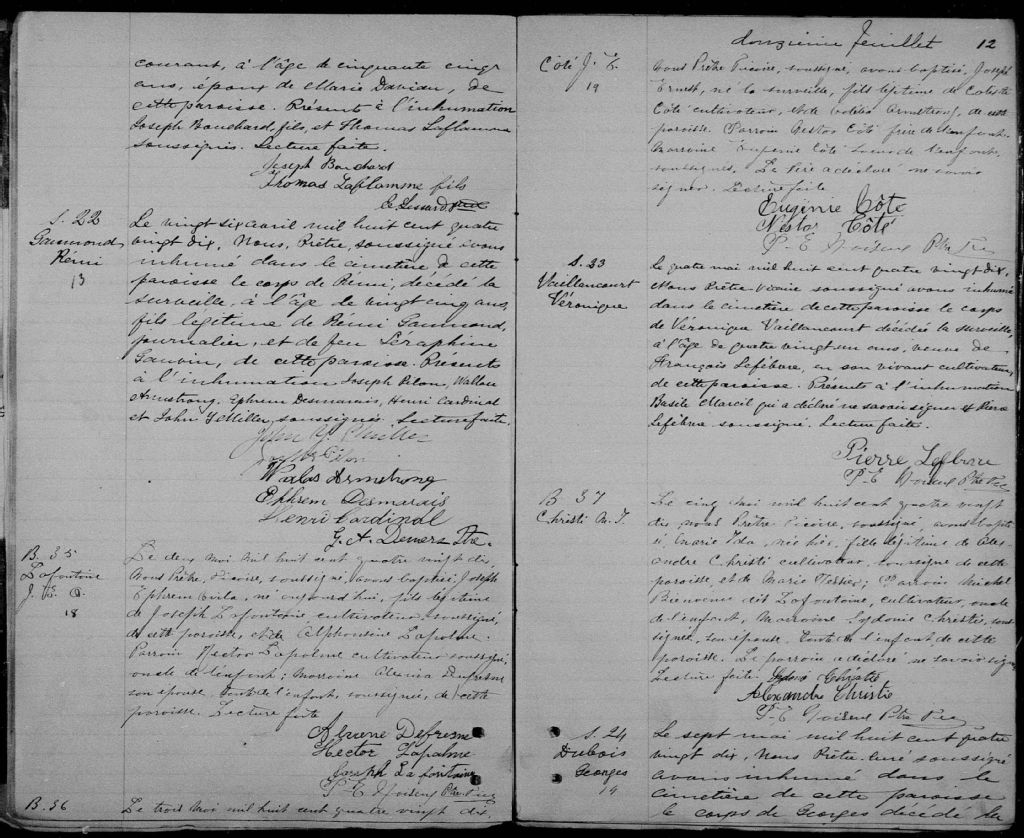 courant, à l'âge de cinquante cinq
ans, époux de Marie Daviau, de
cette paroisse. Présents à l'inhumation
Joseph Bouchard, fils, et Thomas Laflamme
soussignés. Lecture faite.
Joseph Bouchard
Thomas Laflamme fils
S. 22
Gaumond
Rémi
13
Le vingt six avril mil huit cent quatre
vingt dix, Nous, Prêtre, soussigné avons
inhumé dans le cimetière de cette
paroisse le corps de Rémi, décédé la
surveille, à l'âge de vingt cinq ans,
fils légitime de Rémi Gaumond,
journalier, et de feu Séraphine
Gauvin, de cette paroisse. Présents
à l'inhumation Joseph Pilon, Wallace
Armstrong, Ephrem Desmarais, Henri Cardinal
et John Y. Miller, soussignés. Lecture faite.
John Y. Miller
Joseph Pilon
Wallas Armstrong
Ephrem Desmarais
Henri Cardinal
G. A. Demers Ptre.
B. 35
Lafontaine
J. E. O.
18
Le deux Mai mil huit cent quatre vingt dix,
Nous Prêtre, Vicaire, soussigné, avons baptisé Joseph
Ephrem, né aujourd'hui, fils légitime
de Joseph Lafontaine cultivateur, soussigné,
de cette paroisse, et de Alphonsine Lapalme.
Parrain Hector Lapalme cultivateur soussigné,
oncle de l'enfant; marraine Dufresne
son épouse, tante de l'enfant, soussignée, de cette
paroisse. Lecture faite
Defresne
Hector Lapalme
Joseph Lafontaine
P. E. Noiseux Ptre Vic
B. 36
Le trois Mai mil huit cent quatre vingt dix
douzième feuillet 12
Côté J. E.
19
Nous Prêtre Vicaire, soussigné, avons baptisé, Joseph
Ernest, né la surveille, fils légitime de
Côté cultivateur, et de Armstrong, de cette
paroisse. Parrain Nestor Côté frère de l'enfant,
marraine Eugénie Côté soeur de l'enfant,
soussignés. Le père a déclaré ne savoir
signer. Lecture faite
Eugénie Côté
Néstor Côté
P-E Noiseux Ptre Vic
S. 23
Vaillancourt
Véronique
Le quatre mai mil huit cent quatre vingt dix,
Nous Prêtre Vicaire soussigné avons inhumé
dans le cimetière de cette paroisse le corps
de Véronique Vaillancourt décédée la surveille,
à l'âge de quatre vingt un ans, veuve de
François Lefebvre, en son vivant cultivateur,
de cette paroisse. Présents à l'inhumation
Basile Marcil qui a déclaré ne savoir signer et Pierre
Lefebvre soussigné. Lecture faite.
Pierre Lefebvre
P-E Noiseux Ptre Vic
B. 37
Christi M. I.
Le cinq Mai mil huit cent quatre vingt
dix nous Prêtre Vicaire, soussigné, avons bapti
sé Marie Ida née hier, fille légitime de Alex
andre Christi cultivateur, soussigné de cette
paroisse, et de Marie Tessier; Parrain Michel
Bienvenue dit Lafontaine, cultivateur, oncle
de l'enfant, Marraine Sydonie Christi, sous
signée, son épouse, tante de l'enfant de cette
paroisse. Le parrain a déclaré ne savoir signer
Lecture faite. Christie
Alexandre Christie
P-E Noiseux Ptre Vic
S. 24
Dubois
Georges
14
Le sept mai mil huit cent quatre
vingt dix, Nous Prêtre curé soussigné
avons inhumé dans le
cimetière de cette paroisse
le corps de Georges décédé la